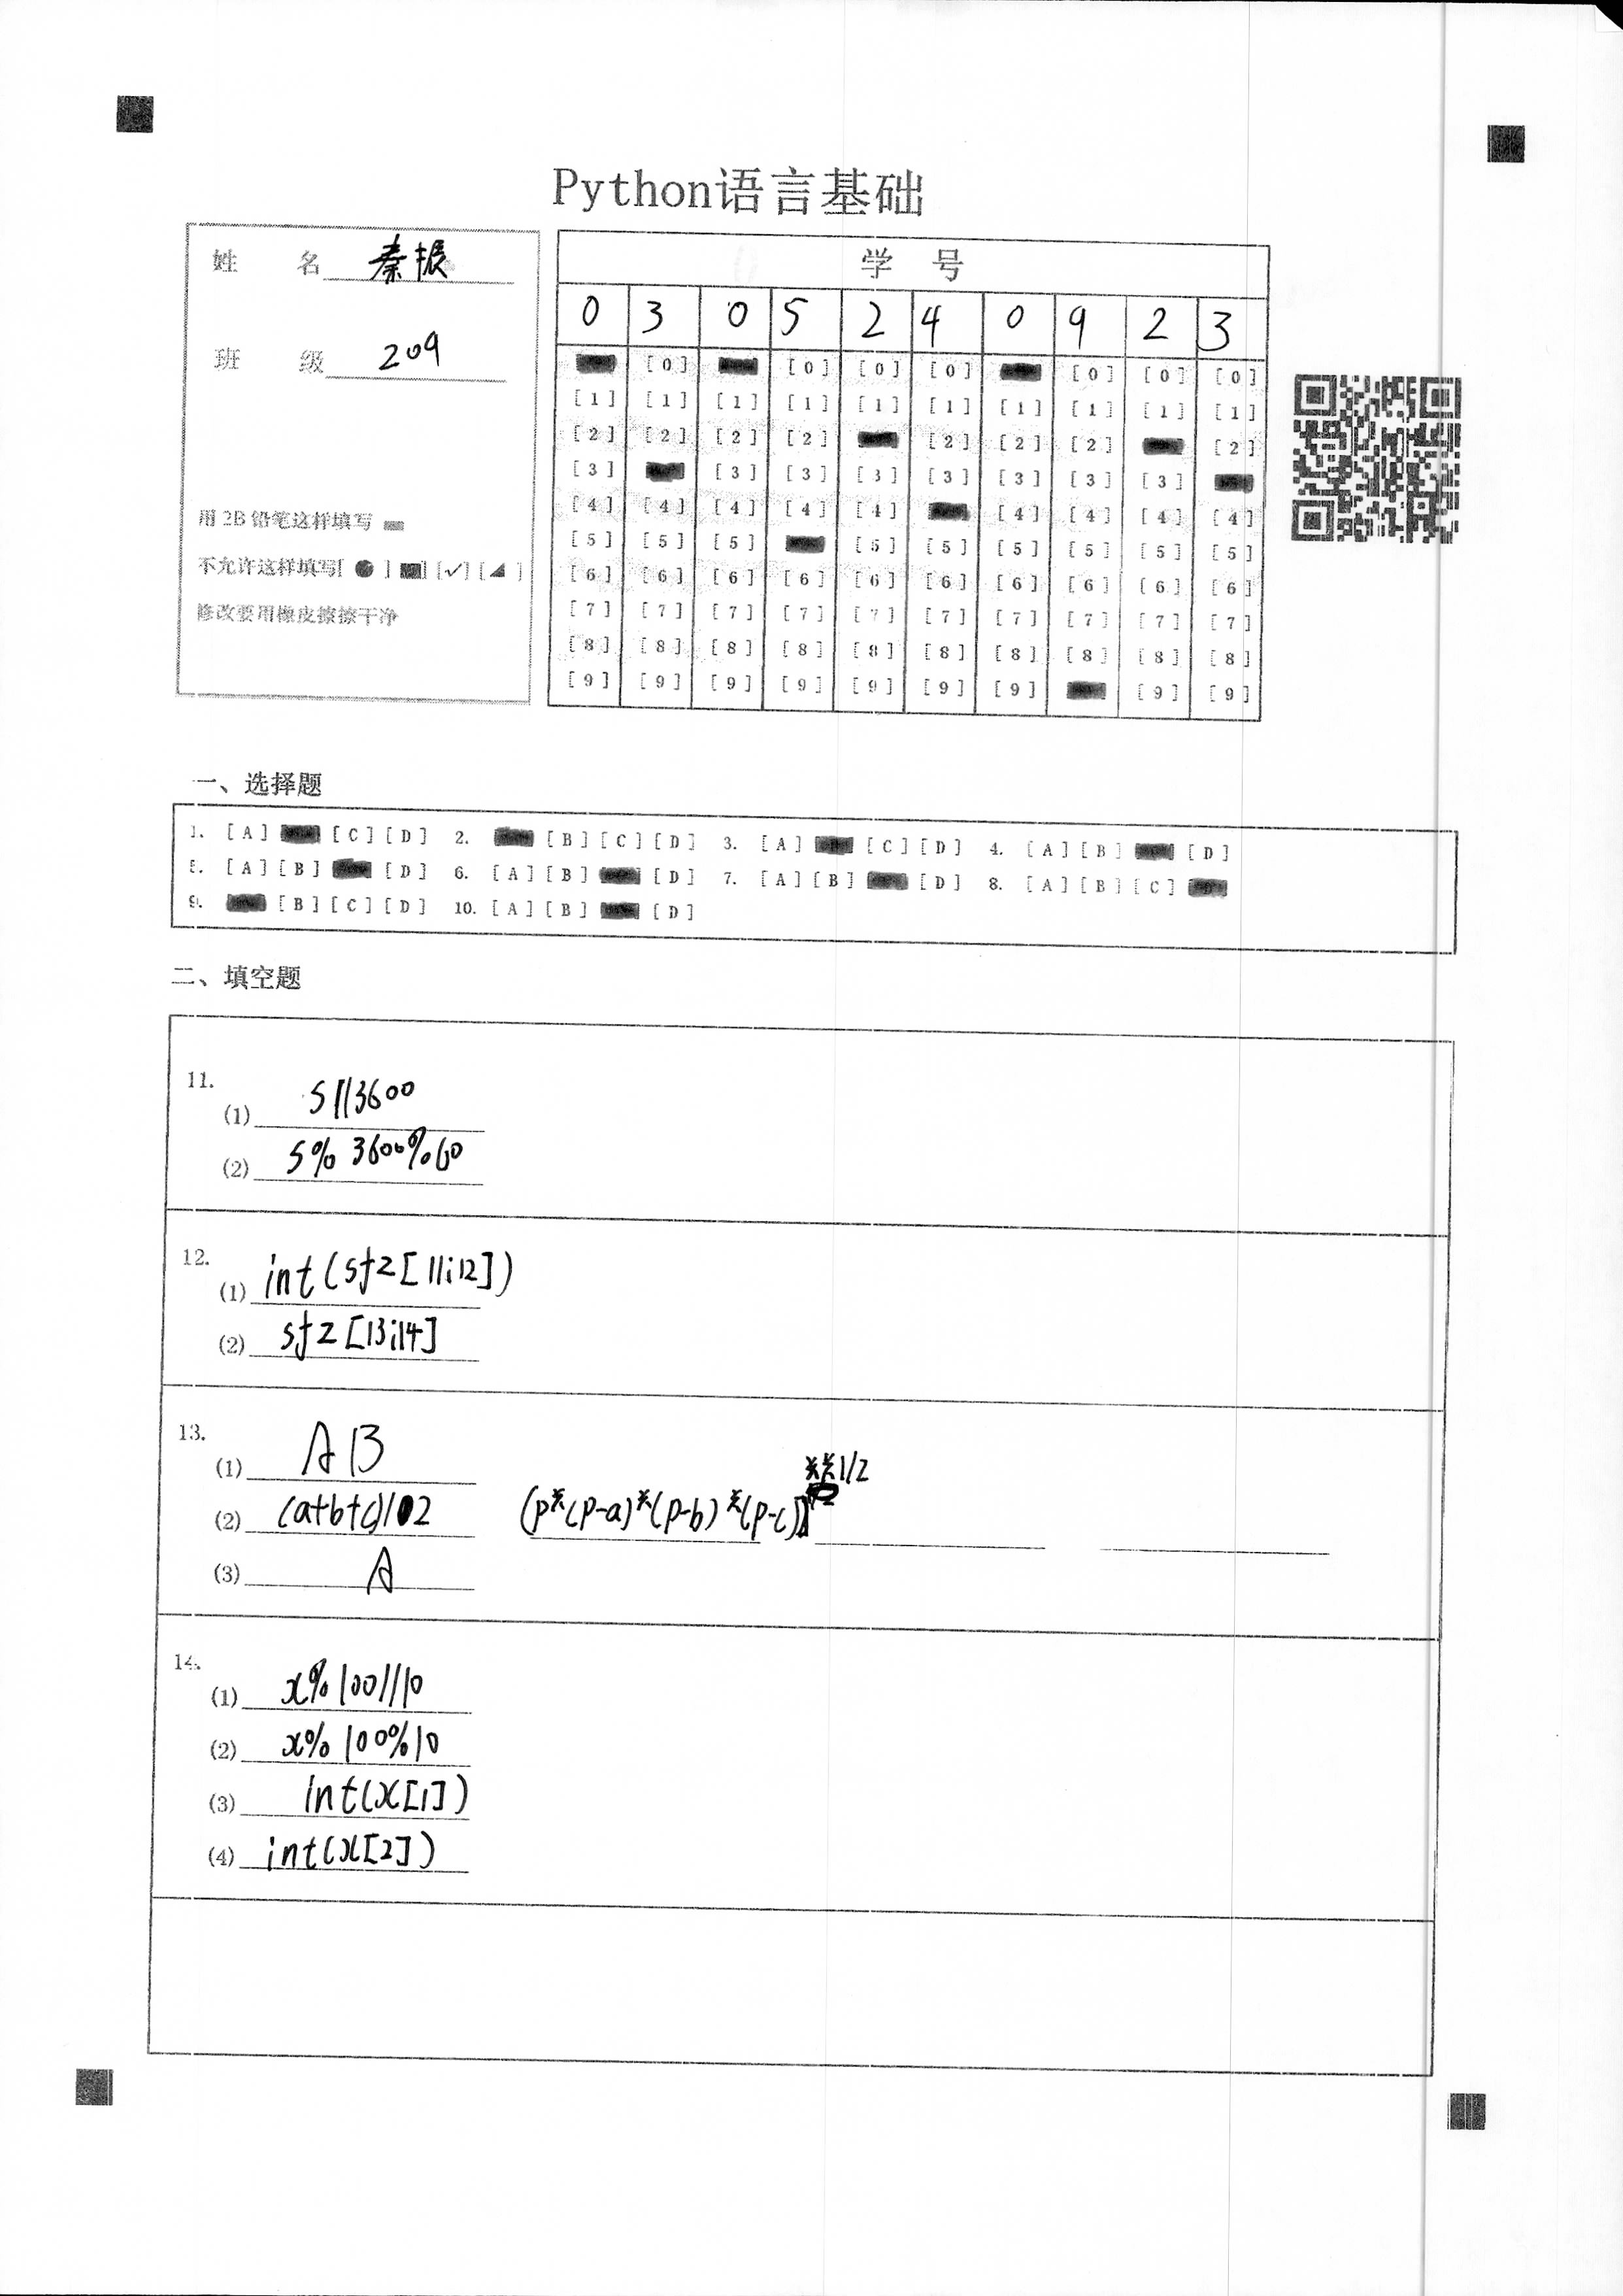 Python语言基础
姓 名 秦振
班 级 209
用 2B 铅笔这样填写
不允许这样填写[ ● ] [■] [✓] [◢ ]
修改要用橡皮擦擦干净
学 号
0 3 0 5 2 4 0 9 2 3
[0] [0] [0] [0] [0] [0] [0]
[1] [1] [1] [1] [1] [1] [1] [1] [1] [1]
[2] [2] [2] [2] [2] [2] [2] [2]
[3] [3] [3] [3] [3] [3] [3] [3]
[4] [4] [4] [4] [4] [4] [4] [4] [4]
[5] [5] [5] [5] [5] [5] [5] [5] [5]
[6] [6] [6] [6] [6] [6] [6] [6] [6] [6]
[7] [7] [7] [7] [7] [7] [7] [7] [7] [7]
[8] [8] [8] [8] [8] [8] [8] [8] [8] [8]
[9] [9] [9] [9] [9] [9] [9] [9] [9]
一、选择题
1. [A] [C] [D] 2. [B] [C] [D] 3. [A] [C] [D] 4. [A] [B] [D]
5. [A] [B] [D] 6. [A] [B] [D] 7. [A] [B] [D] 8. [A] [B] [C]
9. [B] [C] [D] 10. [A] [B] [D]
二、填空题
11.
(1) s//3600
(2) s%3600%60
12.
(1) int(sfz[11:12])
(2) sfz[13:14]
13.
(1) AB
(2) (a+b+c)/2 (p*(p-a)*(p-b)*(p-c))**1/2
(3) A
14.
(1) x%100//10
(2) x%100%10
(3) int(x[1])
(4) int(x[2])